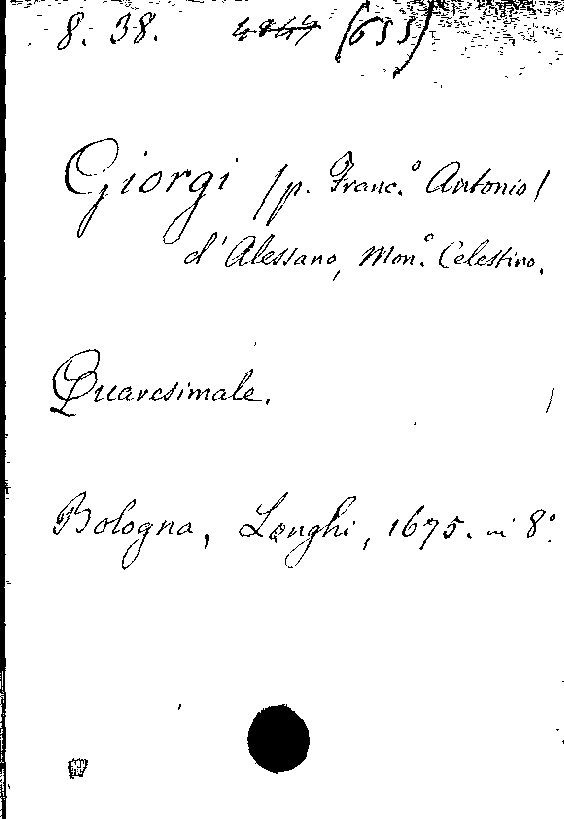 8. 38. (655)
Giorgi /p. Franc.º Antonio/
d'Alessano, Mon.º Celestino.
Quaresimale.
Bologna, Longhi, 1675. in 8º.